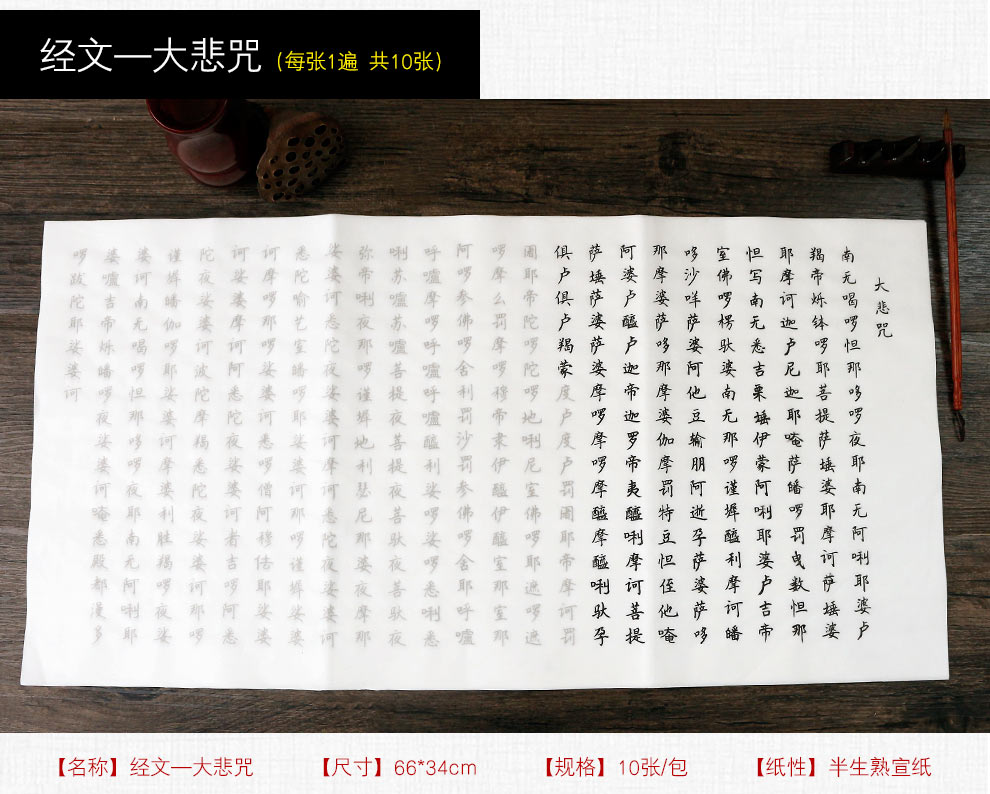 经文—大悲咒（每张1遍 共10张）
大悲咒
南无喝啰怛那哆啰夜耶南无阿唎耶婆卢
羯帝烁钵啰耶菩提萨埵婆耶摩诃萨埵婆
耶摩诃迦卢尼迦耶唵萨皤啰罚曳数怛那
怛写南无悉吉栗埵伊蒙阿唎耶婆卢吉帝
室佛啰楞驮婆南无那啰谨墀醯利摩诃皤
哆沙咩萨婆阿他豆输朋阿逝孕萨婆萨哆
那摩婆萨哆那摩婆伽摩罚特豆怛侄他唵
阿婆卢醯卢迦帝迦罗帝夷醯唎摩诃菩提
萨埵萨婆萨婆摩啰摩啰摩醯摩醯唎驮孕
俱卢俱卢羯蒙度卢度卢罚阇耶帝摩诃罚
阇耶帝陀啰陀啰地唎尼室佛啰耶遮啰遮
啰摩么罚摩啰穆帝隶伊醯伊醯室那室那
阿啰参佛啰舍利罚沙罚参佛啰舍耶呼嚧
呼嚧摩啰呼嚧呼嚧醯利娑啰娑啰悉唎悉
唎苏嚧苏嚧菩提夜菩提夜菩驮夜菩驮夜
弥帝唎夜那啰谨墀地利瑟尼那波夜摩那
娑婆诃悉陀夜娑婆诃摩诃悉陀夜娑婆诃
悉陀喻艺室皤啰耶娑婆诃那啰谨墀娑婆
诃摩啰那啰娑婆诃悉啰僧阿穆佉耶娑婆
诃娑婆摩诃阿悉陀夜娑婆诃者吉啰阿悉
陀夜娑婆诃波陀摩羯悉陀夜娑婆诃那啰
谨墀皤伽啰耶娑婆诃摩婆利胜羯啰夜娑
婆诃南无喝啰怛那哆啰夜耶南无阿唎耶
婆嚧吉帝烁皤啰夜娑婆诃唵悉殿都漫多
啰跋陀耶娑婆诃
【名称】经文—大悲咒 【尺寸】66*34cm 【规格】10张/包 【纸性】半生熟宣纸